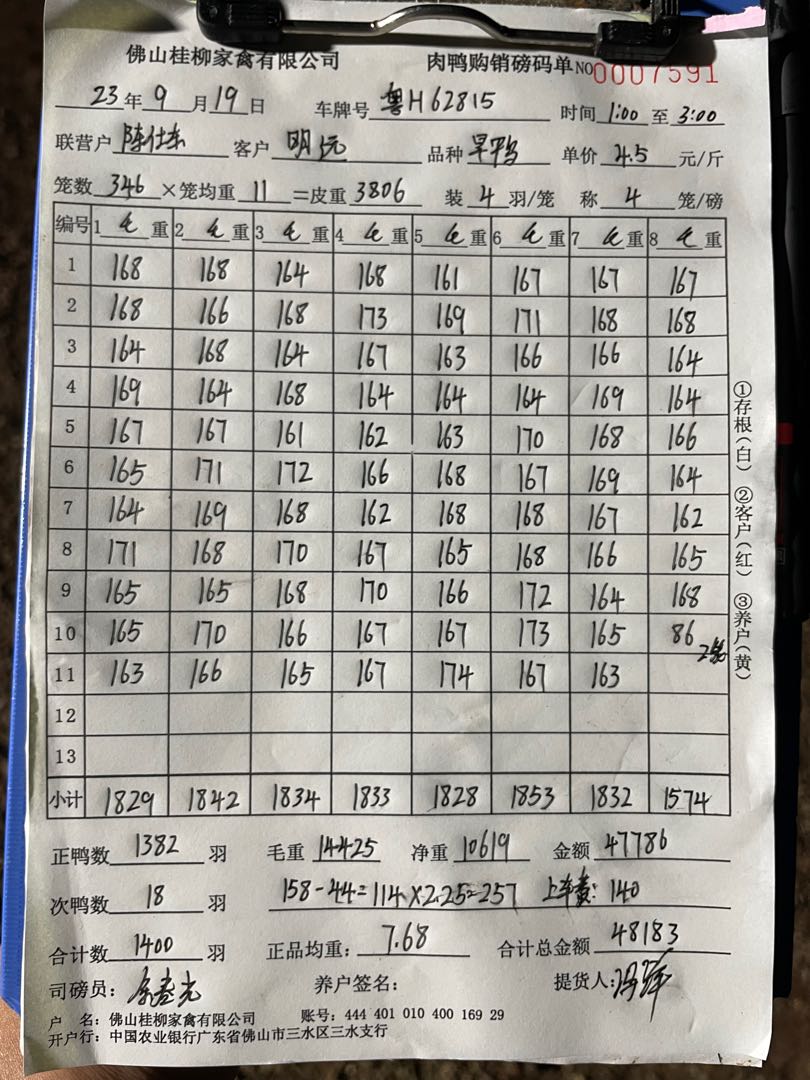 佛山桂柳家禽有限公司 肉鸭购销磅码单 NO 0007591
23年9月19日 车牌号 粤H62815 时间 1:00 至 3:00
联营户 陈仕东 客户 明 品种 旱鸭 单价 4.5 元/斤
笼数 346 ×笼均重 11 =皮重 3806 装 4 羽/笼 称 4 笼/磅
编号 1 毛 重 2 毛 重 3 毛 重 4 毛 重 5 毛 重 6 毛 重 7 毛 重 8 毛 重
1 168 168 164 168 161 167 167 167
2 168 166 168 173 169 171 168 168
3 164 168 164 167 163 166 166 164
4 169 164 168 164 164 164 169 164
5 167 167 161 162 163 170 168 166
6 165 171 172 166 168 167 169 164
7 164 169 168 162 168 168 167 162
8 171 168 170 167 165 168 166 165
9 165 165 168 170 166 172 164 168
10 165 170 166 167 167 173 165 86 2笼
11 163 166 165 167 174 167 163
12
13
小计 1829 1842 1834 1833 1828 1853 1832 1574
①存根(白) ②客户(红) ③养户(黄)
正鸭数 1382 羽 毛重 14425 净重 10619 金额 47786
次鸭数 18 羽 158-44=114×2.25=257 上车费: 140
合计数 1400 羽 正品均重: 7.68 合计总金额 48183
司磅员: 养户签名: 提货人:
户 名: 佛山桂柳家禽有限公司 账号: 444 401 010 400 169 29
开户行: 中国农业银行广东省佛山市三水区三水支行